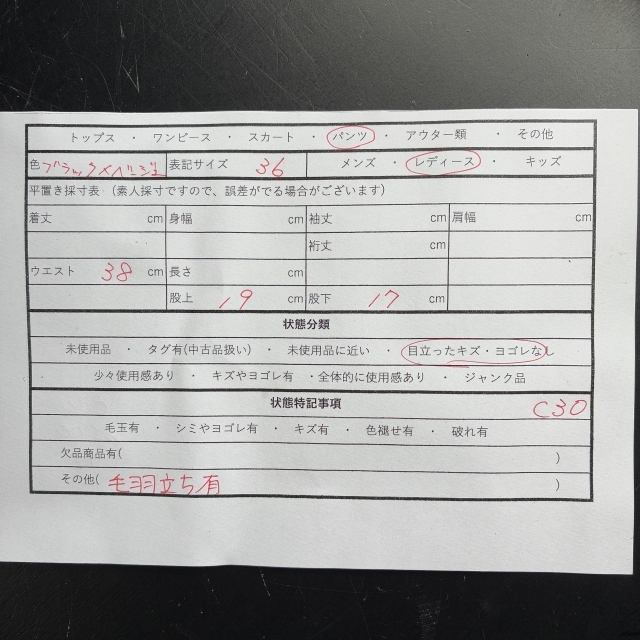 トップス ・ ワンピース ・ スカート ・ パンツ ・ アウター類 ・ その他
色 ブラック×ベージュ 表記サイズ 36 メンズ ・ レディース ・ キッズ
平置き採寸表 (素人採寸ですので、誤差がでる場合がございます)
着丈 cm 身幅 cm 袖丈 cm 肩幅 cm
裄丈 cm
ウエスト 38 cm 長さ cm
股上 19 cm 股下 17 cm
状態分類
未使用品 ・ タグ有(中古品扱い) ・ 未使用品に近い ・ 目立ったキズ・ヨゴレなし
少々使用感あり ・ キズやヨゴレ有 ・全体的に使用感あり ・ ジャンク品
状態特記事項 C30
毛玉有 ・ シミやヨゴレ有 ・ キズ有 ・ 色褪せ有 ・ 破れ有
欠品商品有( )
その他( 毛羽立ち有 )